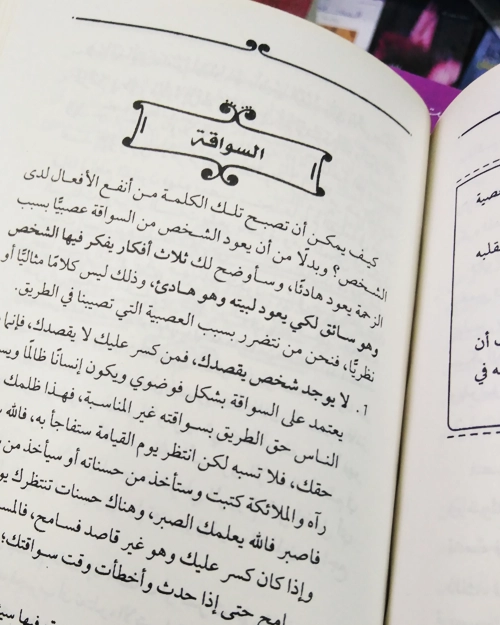 السواقة
كيف يمكن أن تصبح تلك الكلمة من أنفع الأفعال لدى
الشخص؟ وبدلًا من أن يعود الشخص من السواقة عصبيًّا بسبب
الزحمة يعود هادئًا، وسأوضح لك ثلاث أفكار يفكر فيها الشخص
وهو سائق لكي يعود لبيته وهو هادئ، وذلك ليس كلامًا مثاليًّا أو
نظريًّا، فنحن من نتضرر بسبب العصبية التي تصيبنا في الطريق.
1. لا يوجد شخص يقصدك، فمن كسر عليك لا يقصدك، فإنما
يعتمد على السواقة بشكل فوضوي ويكون إنسانًا ظالمًا
الناس حق الطريق بسواقته غير المناسبة، فهذا ظلمك
حقك، فلا تسبه لكن انتظر يوم القيامة ستفاجأ به، فالله
رآه والملائكة كتبت وستأخذ من حسناته أو سيأخذ من
فاصبر فالله يعلمك الصبر، وهناك حسنات تنتظرك
وإذا كان كسر عليك وهو غير قاصد فسامح،
امح حتى إذا حدث وأخطأت وقت سواقتك؛
صية
تقليه
أن
ه في